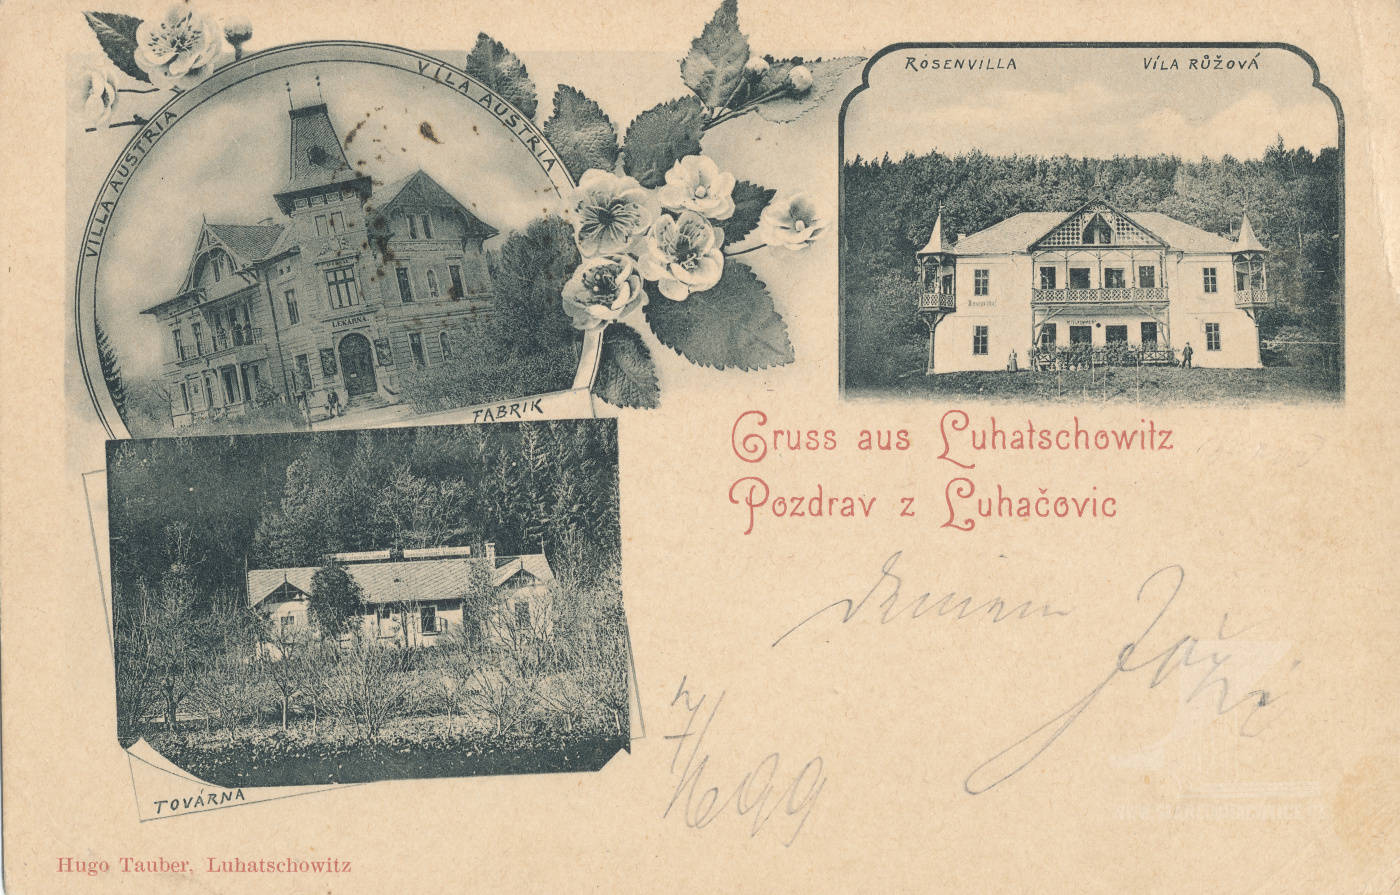 VILLA AUSTRIA
VÍLA AUSTRIA
LEKÁRNA.
ROSENVILLA
VÍLA RŮŽOVÁ
FABRIK
Gruss aus Luhatschowitz
Pozdrav z Luhačovic
7/6 99
TOVÁRNA
Hugo Tauber, Luhatschowitz